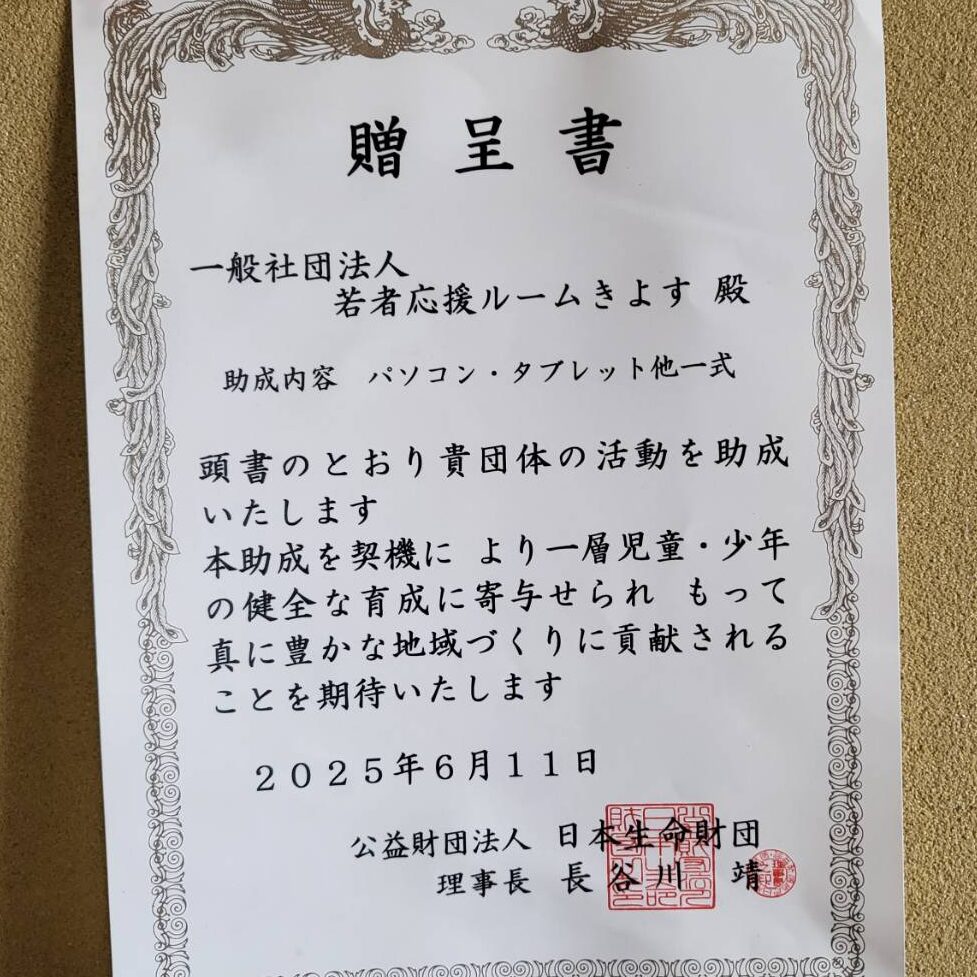 贈呈書
一般社団法人
若者応援ルームきよす 殿
助成内容 パソコン・タブレット他一式
頭書のとおり貴団体の活動を助成
いたします
本助成を契機に より一層児童・少年
の健全な育成に寄与せられ もって
真に豊かな地域づくりに貢献される
ことを期待いたします
2025年6月11日
公益財団法人 日本生命財団
理事長 長谷川 靖